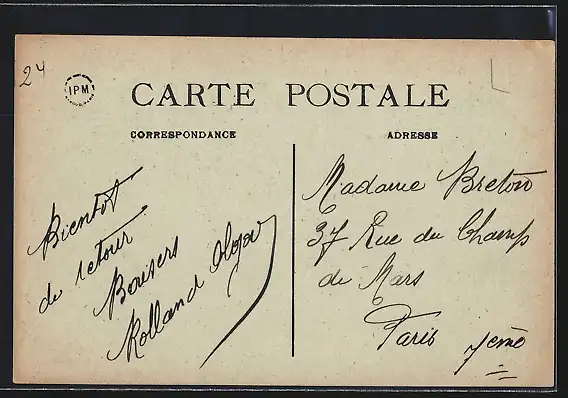 24
IPM
CARTE POSTALE
CORRESPONDANCE
ADRESSE
Bientot
de retour
Baisers
Rolland Olga
Madame Breton
37 Rue du Champ
de Mars
Paris 7eme